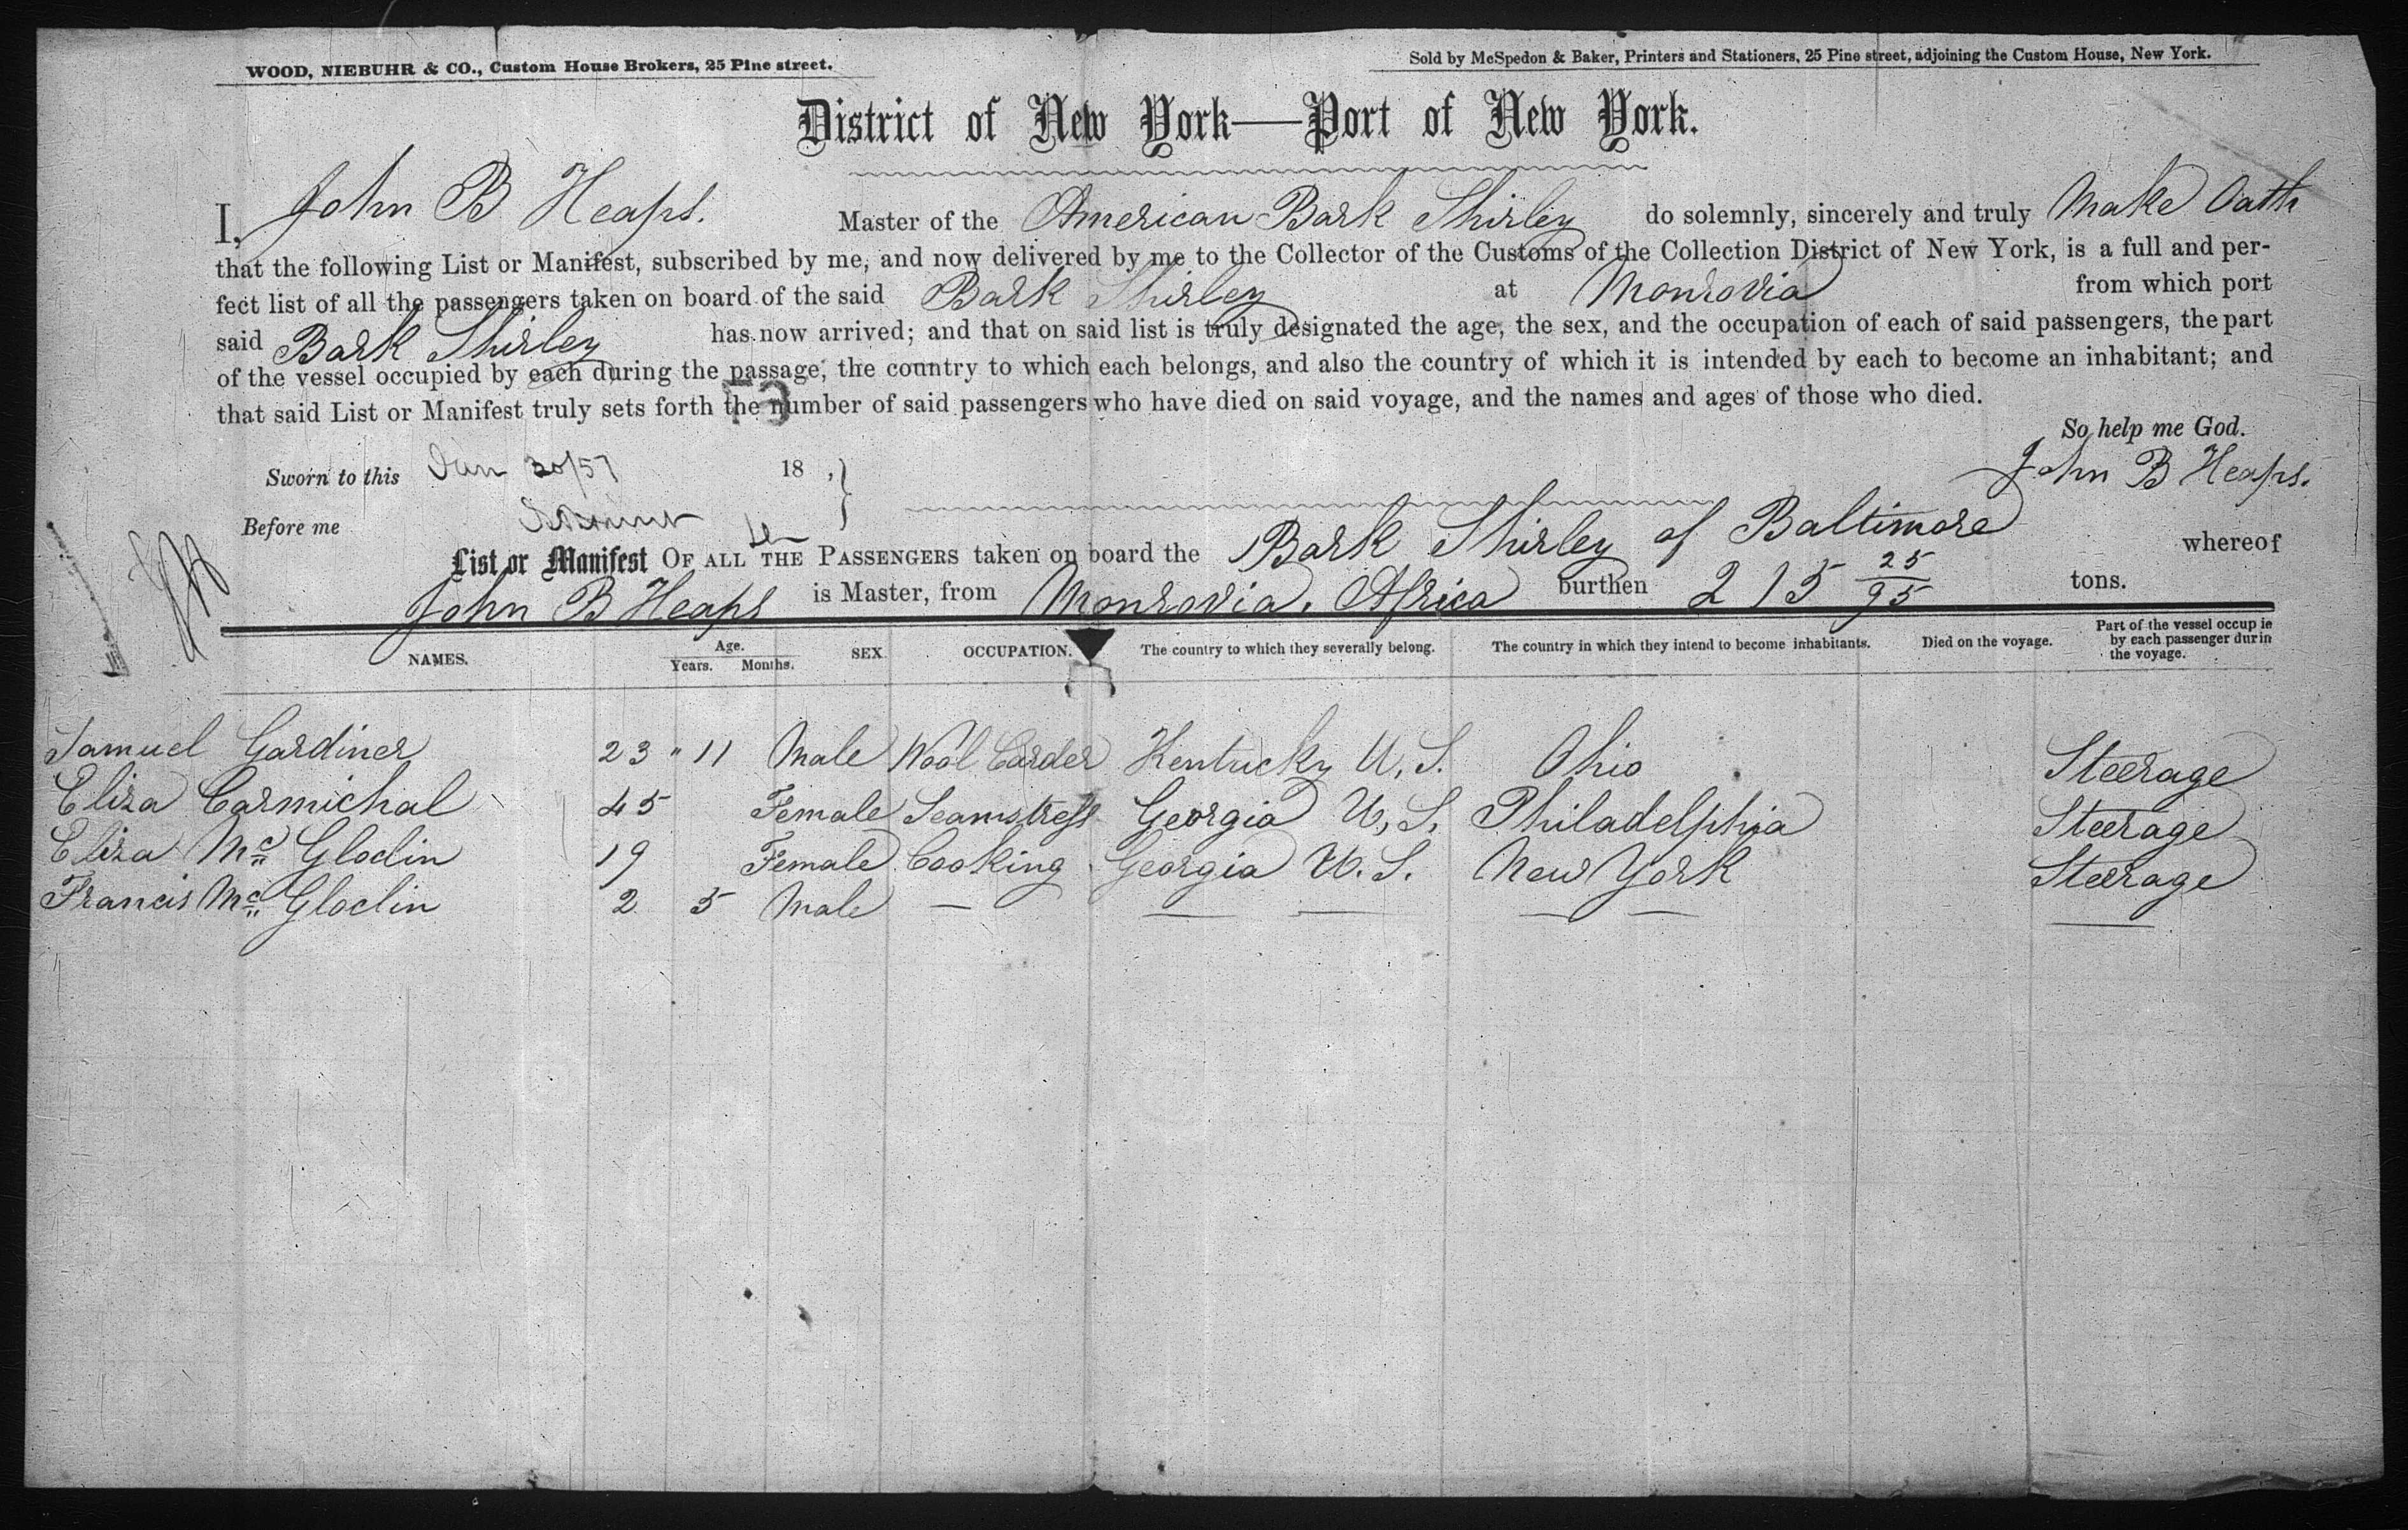 WOOD, NIEBUHR & CO., Custom House Brokers, 25 Pine street.
Sold by McSpedon & Baker, Printers and Stationers, 25 Pine street, adjoining the Custom House, New York.
District of New York—Port of New York.
I, John B Heaps. Master of the American Bark Shirley do solemnly, sincerely and truly Make Oath
that the following List or Manifest, subscribed by me, and now delivered by me to the Collector of the Customs of the Collection District of New York, is a full and per-
fect list of all the passengers taken on board of the said Bark Shirley at Monrovia from which port
said Bark Shirley has now arrived; and that on said list is truly designated the age, the sex, and the occupation of each of said passengers, the part
of the vessel occupied by each during the passage, the country to which each belongs, and also the country of which it is intended by each to become an inhabitant; and
that said List or Manifest truly sets forth the number of said passengers who have died on said voyage, and the names and ages of those who died.
So help me God.
Sworn to this Jan 30/57 18 ,
John B Heaps.
Before me
List or Manifest OF ALL THE PASSENGERS taken on board the Bark Shirley of Baltimore whereof
John B Heaps is Master, from Monrovia, Africa burthen 215 25/95 tons.
NAMES. Age. Years. Months. SEX OCCUPATION. The country to which they severally belong. The country in which they intend to become inhabitants. Died on the voyage. Part of the vessel occup ie by each passenger durin the voyage.
Samuel Gardiner 23 " 11 Male Wool Carder Kentucky U.S. Ohio Steerage
Eliza Carmichal 45 Female Seamstress Georgia U.S. Philadelphia Steerage
Eliza Mc Gloclin 19 Female Cooking Georgia U.S. New York Steerage
Francis Mc Gloclin 2 5 Male — — — — — —